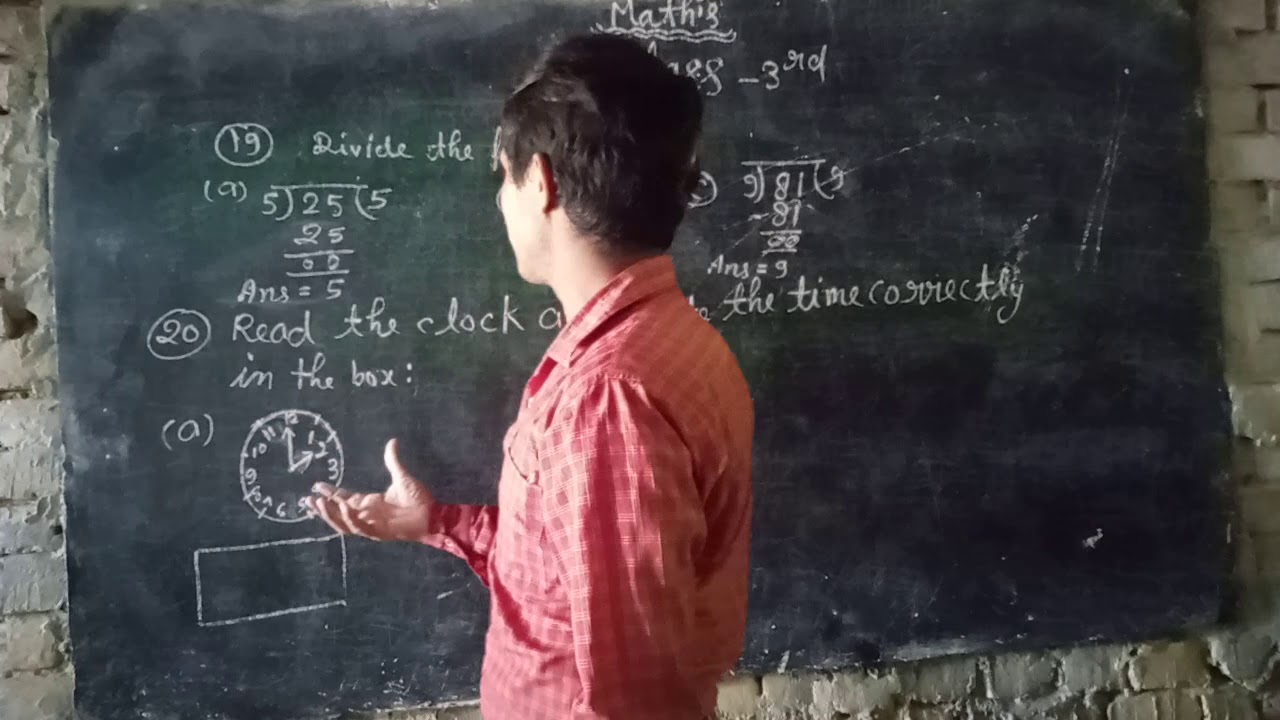 Math's
- 3rd
19 Divide the
(a) 5)25(5
25
00
Ans = 5
9)81(9
- 81
00
Ans = 9
20 Read the clock the time correctly
in the box:
(a)
12
11 1
10 2
9 3
8
7 6 5